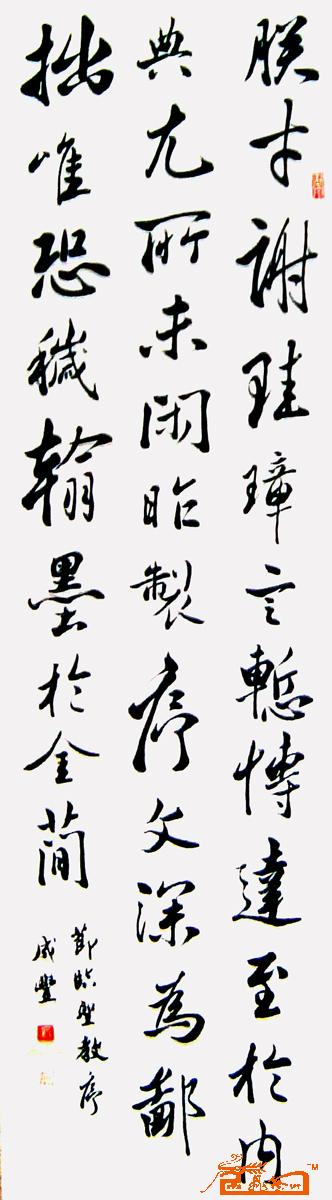 朕才謝珪璋言慙博達至於內
典尤所未閑昨製序文深為鄙
拙唯恐穢翰墨於金簡
節臨聖教序
成豐